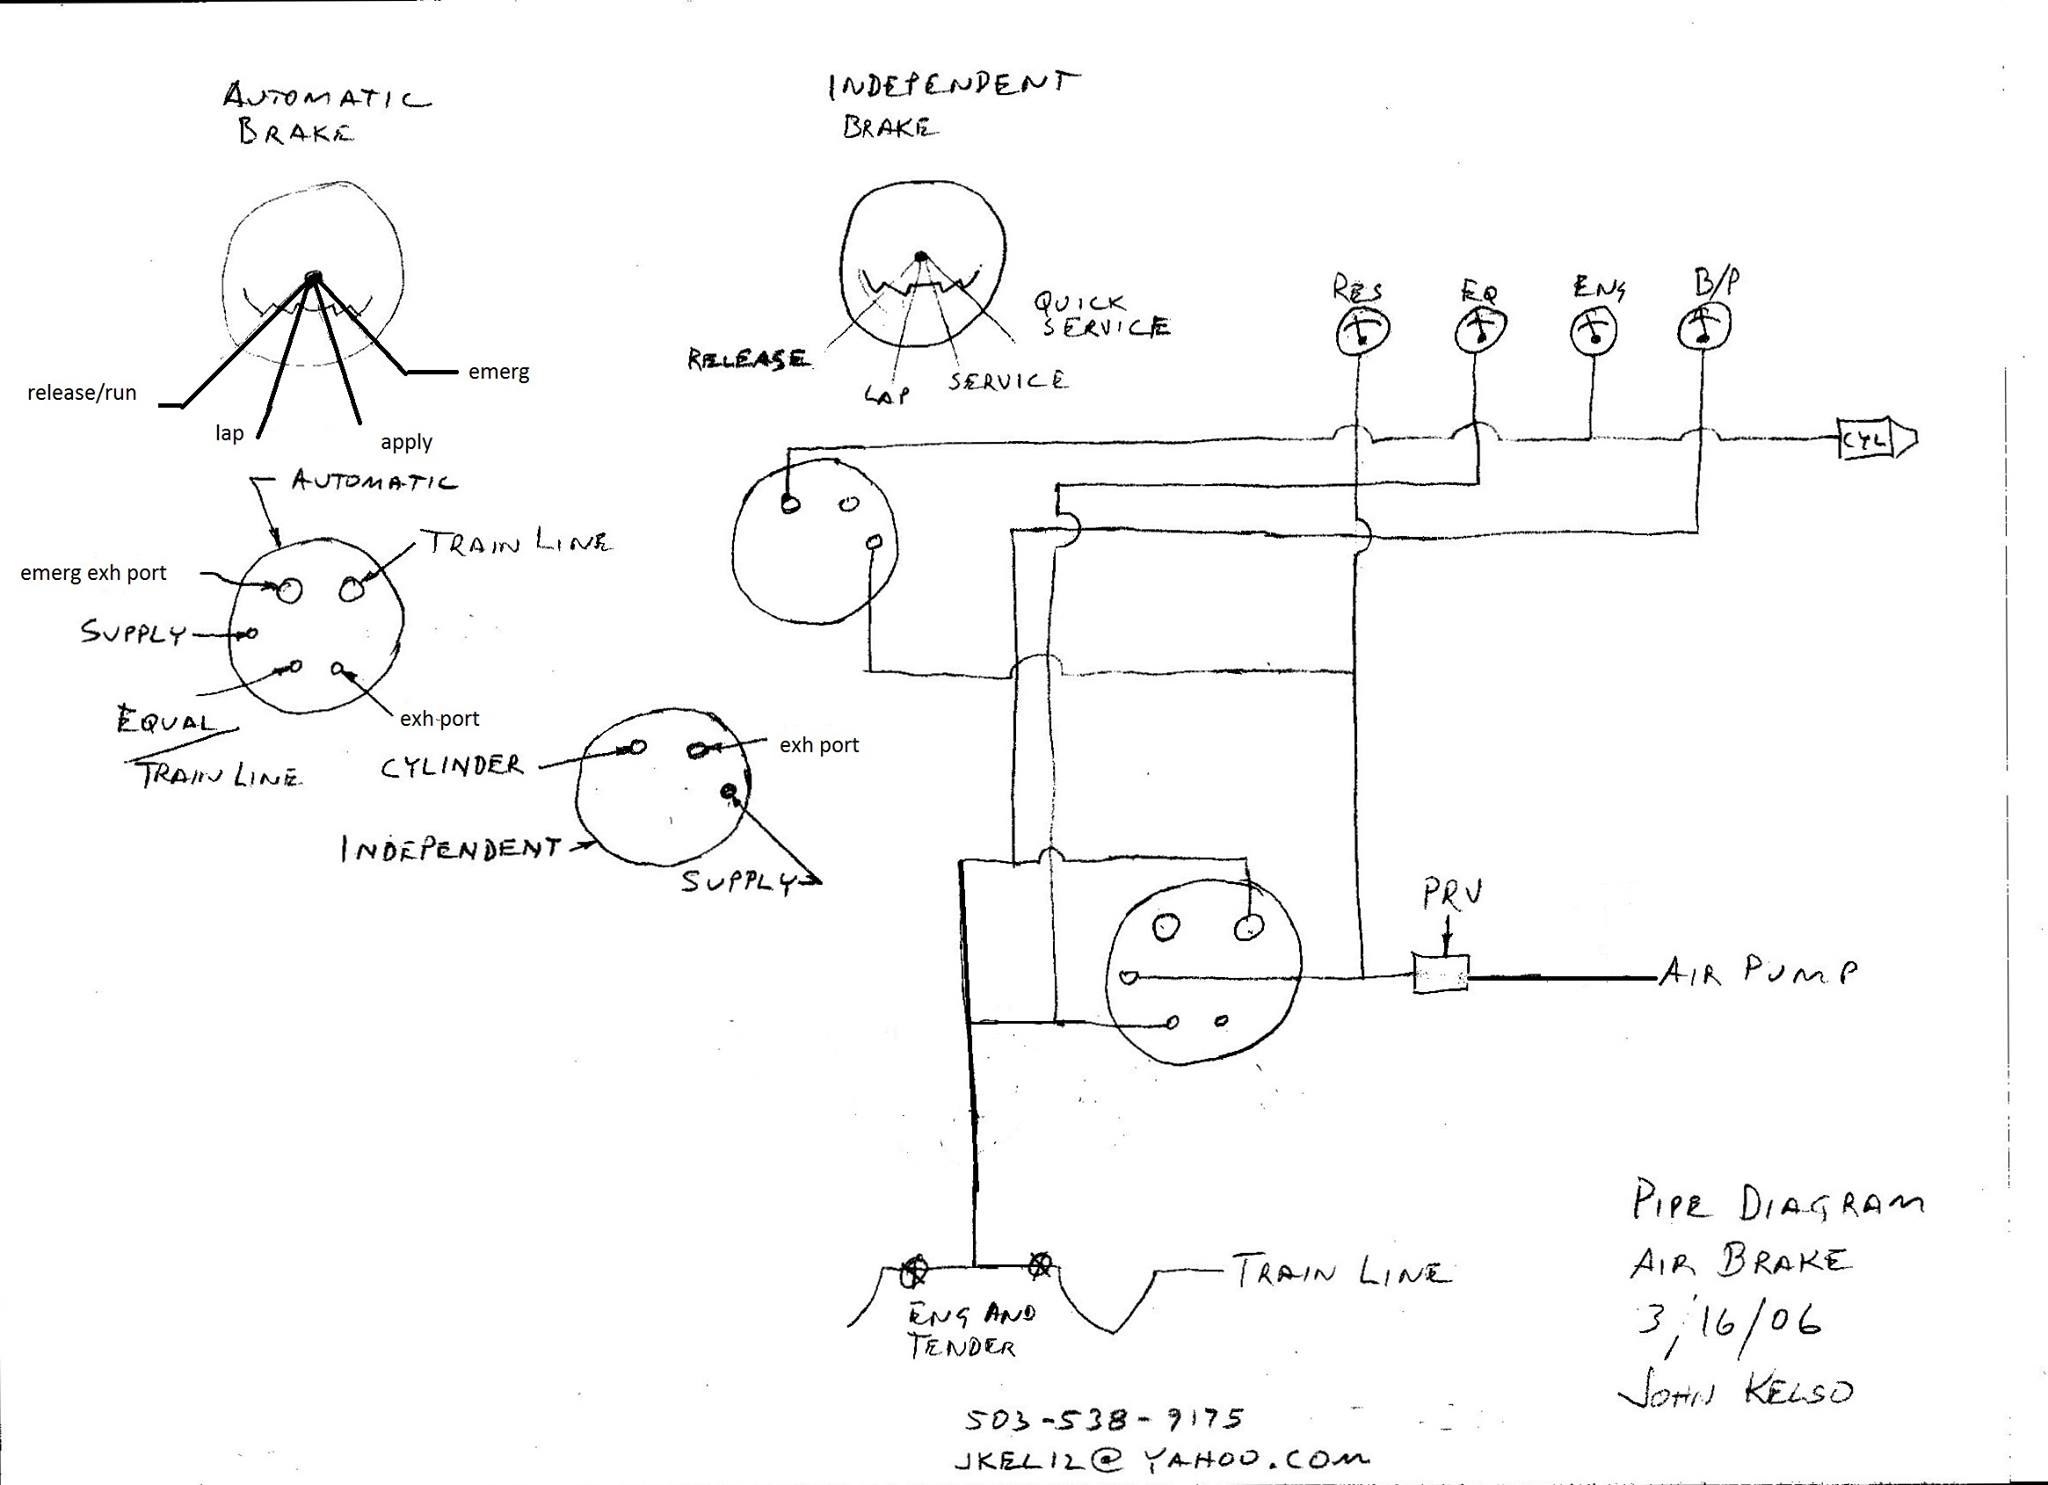 AUTOMATIC
BRAKE
INDEPENDENT
BRAKE
release/run
lap
apply
emerg
RELEASE
LAP
SERVICE
QUICK
SERVICE
RES
EQ
ENG
B/P
CYL
AUTOMATIC
TRAIN LINE
emerg exh port
SUPPLY
EQUAL
TRAIN LINE
exh port
CYLINDER
exh port
INDEPENDENT
SUPPLY
PRV
AIR PUMP
TRAIN LINE
ENG AND
TENDER
PIPE DIAGRAM
AIR BRAKE
3/16/06
JOHN KELSO
503-538-9175
JKEL12@YAHOO.COM